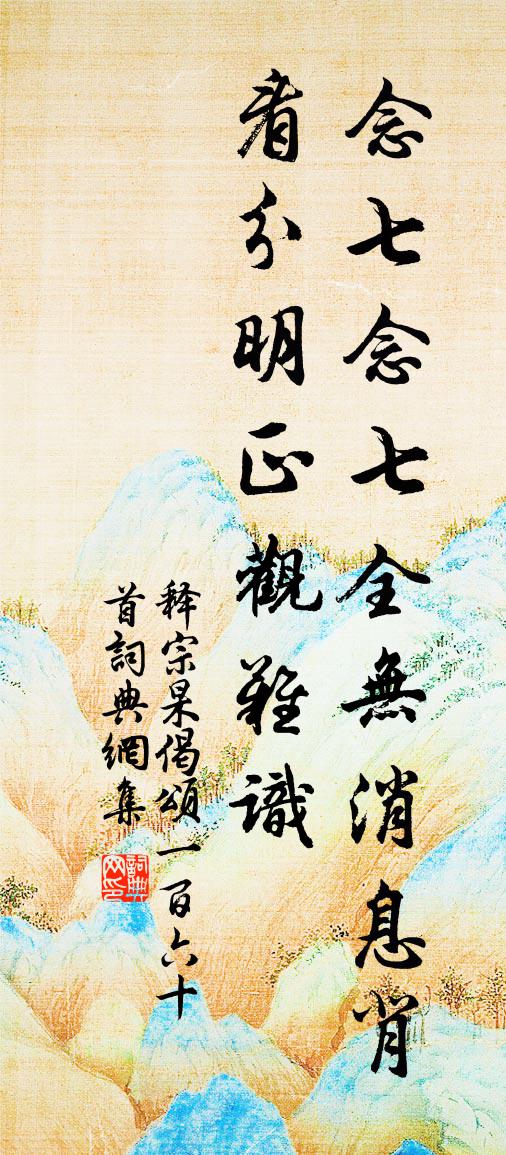 念七念七全無消息背
看分明正觀難識
釋宗杲偈頌一百六十
首詞典網集
詞典
网印